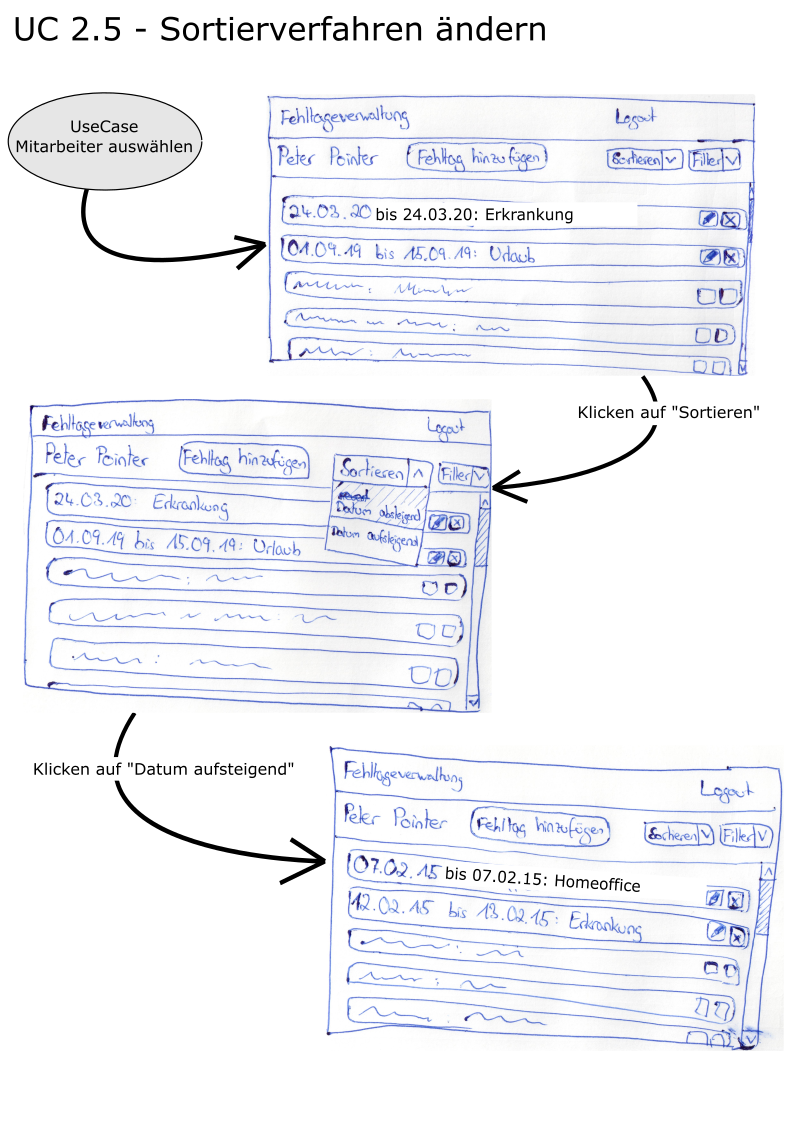 UC 2.5 - Sortierverfahren ändern
UseCase
Mitarbeiter auswählen
Fehltageverwaltung Logout
Peter Pointer Fehltag hinzufügen Sortieren Filter
24.03.20 bis 24.03.20: Erkrankung
01.09.19 bis 15.09.19: Urlaub
Klicken auf "Sortieren"
Fehltageverwaltung Logout
Peter Pointer Fehltag hinzufügen Sortieren Filter
Datum absteigend
Datum aufsteigend
24.03.20: Erkrankung
01.09.19 bis 15.09.19: Urlaub
Klicken auf "Datum aufsteigend"
Fehltageverwaltung Logout
Peter Pointer Fehltag hinzufügen Sortieren Filter
07.02.15 bis 07.02.15: Homeoffice
12.02.15 bis 13.02.15: Erkrankung